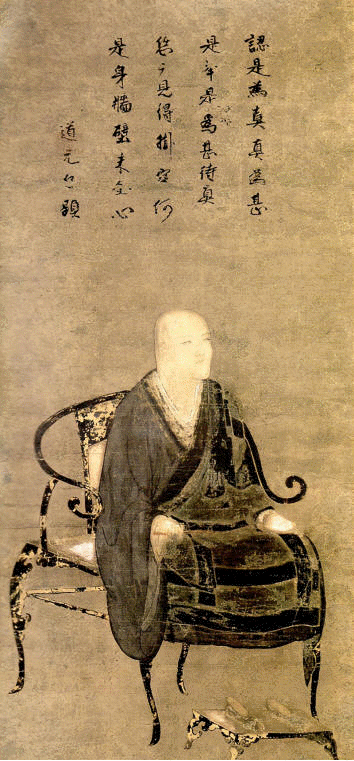 認是為真真為甚
是卒是為甚待真
恁見得掛空何
是身牆壁未全心
道元自題